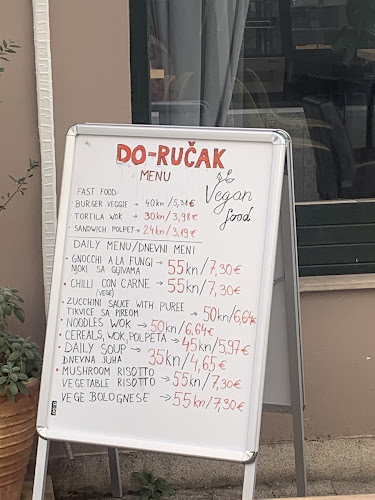 DO-RUČAK
MENU
Vegan
food
FAST FOOD:
• BURGER VEGGIE → 40kn/5,31€
• TORTILA WOK → 30kn/3,98€
• SANDWICH POLPET → 24kn/3,19€
DAILY MENU/DNEVNI MENI
• GNOCCHI A LA FUNGI → 55kn/7,30€
NJOKI SA GLJIVAMA
• CHILLI CON CARNE → 55kn/7,30€
(VEGE)
• ZUCCHINI SAUCE WITH PUREE → 50kn/6,64€
TIKVICE SA PIREOM
• NOODLES WOK → 50kn/6,64€
• CEREALS, WOK, POLPETA → 45kn/5,97€
• DAILY SOUP → 35kn/4,65€
DNEVNA JUHA
• MUSHROOM RISOTTO
VEGETABLE RISOTTO → 55kn/7,30€
VEGE BOLOGNESE → 55kn/7,30€